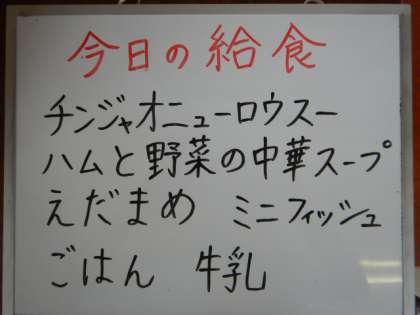 今日の給食
チンジャオニューロウスー
ハムと野菜の中華スープ
えだまめ ミニフィッシュ
ごはん 牛乳